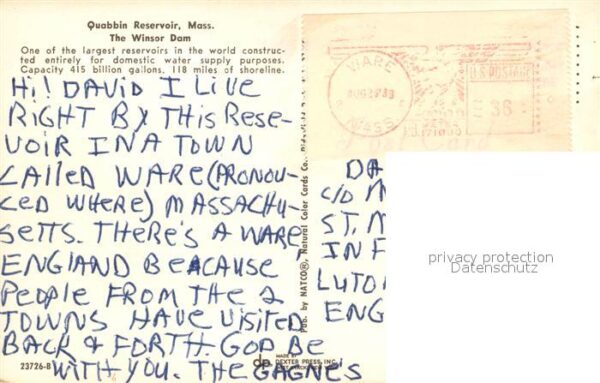 Quabbin Reservoir, Mass.
The Winsor Dam
One of the largest reservoirs in the world construc-
ted entirely for domestic water supply purposes.
Capacity 415 billion gallons. 118 miles of shoreline.
Hi! DAVID I LIVE
RIGHT BY THIS RESE-
VOIR IN A TOWN
CALLED WARE (PRONOU-
CED WHERE) MASSACHU-
SETTS. THERE'S A WARE,
ENGLAND BECAUSE
PEOPLE FROM THE 2
TOWNS HAVE VISITED
BACK & FORTH. GOD BE
WITH YOU. THE GAGNE'S
23726-B
MADE BY
DEXTER PRESS, INC.
Pub. by NATCO®, Natural Color Cards Co.
WARE
MASS
36
DA
C/O M
ST. M
IN F
LUTO
ENG
privacy protection
Datenschutz